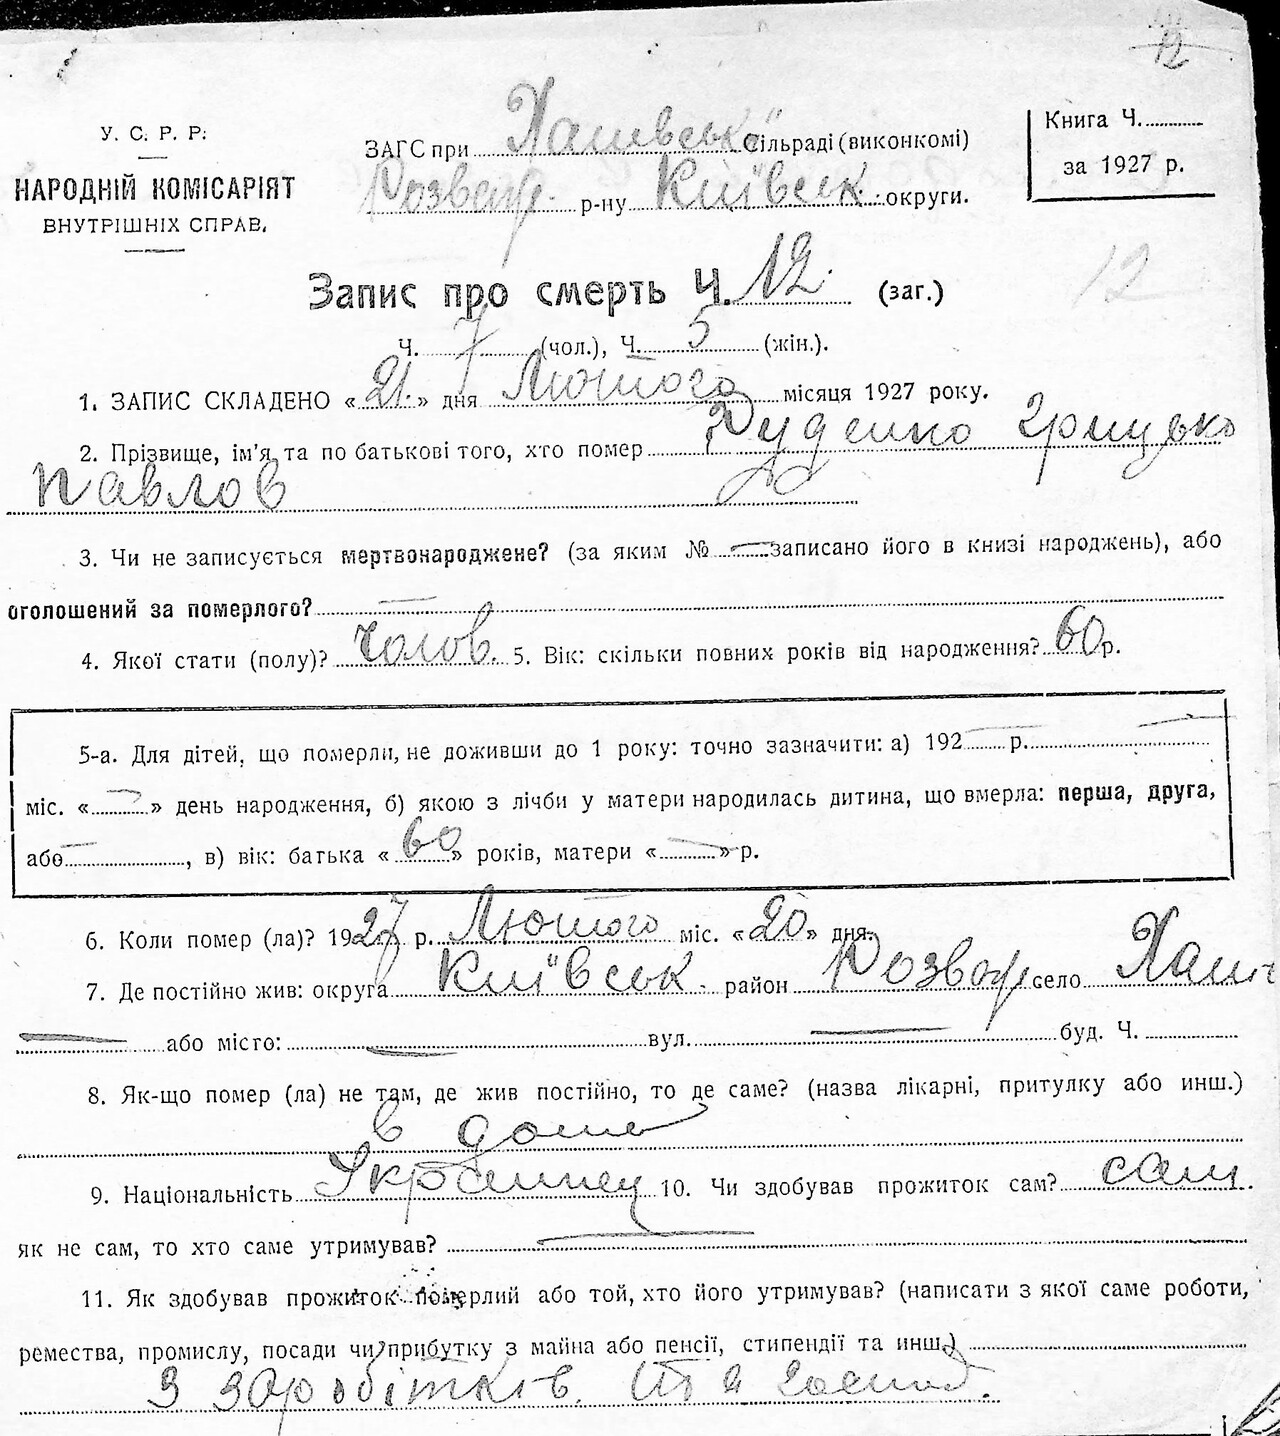 12
У. С. Р. Р.
НАРОДНІЙ КОМІСАРІЯТ
ВНУТРІШНІХ СПРАВ.
ЗАГС при Хашвськ Сільраді (виконкомі)
Розваж. р-ну Київськ. округи.
Книга Ч.
за 1927 р.
Запис про смерть Ч. 12. (заг.)
12
Ч. 7 (чол.), Ч. 5 (жін.).
1. ЗАПИС СКЛАДЕНО «21.» дня Лютого місяця 1927 року.
2. Прізвище, ім'я та по батькові того, хто помер Руденко Грицько
Павлов
3. Чи не записується мертвонароджене? (за яким № — записано його в книзі народжень), або
оголошений за померлого? —
4. Якої стати (полу)? Чолов. 5. Вік: скільки повних років від народження? 60 р.
5-а. Для дітей, що померли, не доживши до 1 року: точно зазначити: а) 192 — р. —
міс. « — » день народження, б) якою з лічби у матери народилась дитина, що вмерла: перша, друга,
або —, в) вік: батька «60» років, матери « — » р.
6. Коли помер (ла)? 1927 р. Лютого міс. «20» дня.
7. Де постійно жив: округа Київськ. район Розваж село
— або місто: — вул. — буд. Ч.
8. Як-що помер (ла) не там, де жив постійно, то де саме? (назва лікарні, притулку або инш.)
в дома
9. Національність Украинец 10. Чи здобував прожиток сам? сам
як не сам, то хто саме утримував? —
11. Як здобував прожиток померлий або той, хто його утримував? (написати з якої саме роботи,
ремества, промислу, посади чи прибутку з майна або пенсії, стипендії та инш.)
З заробітків.